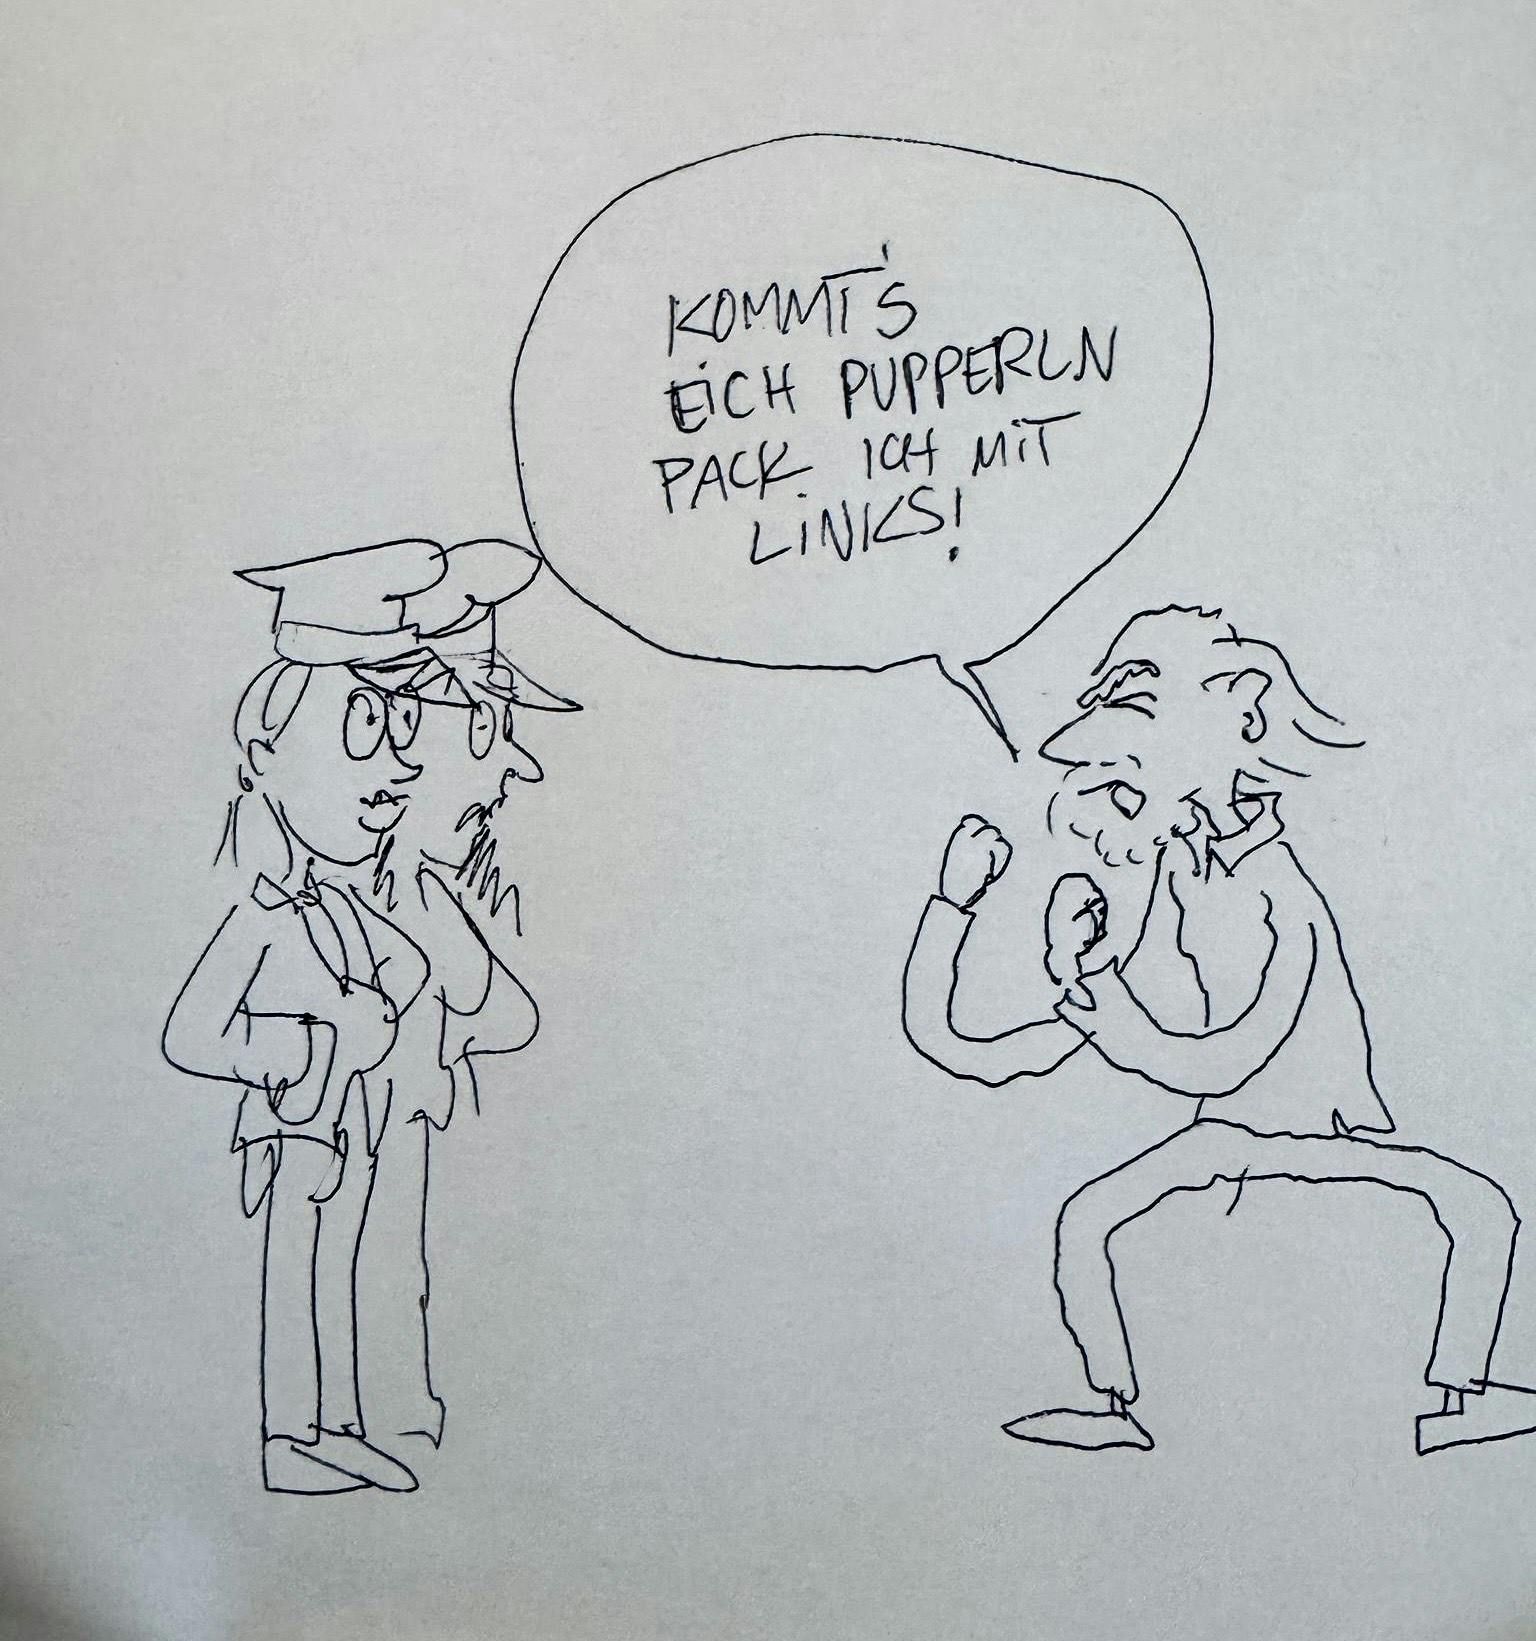 KOMMT'S
EICH PUPPERLN
PACK ICH MIT
LINKS!